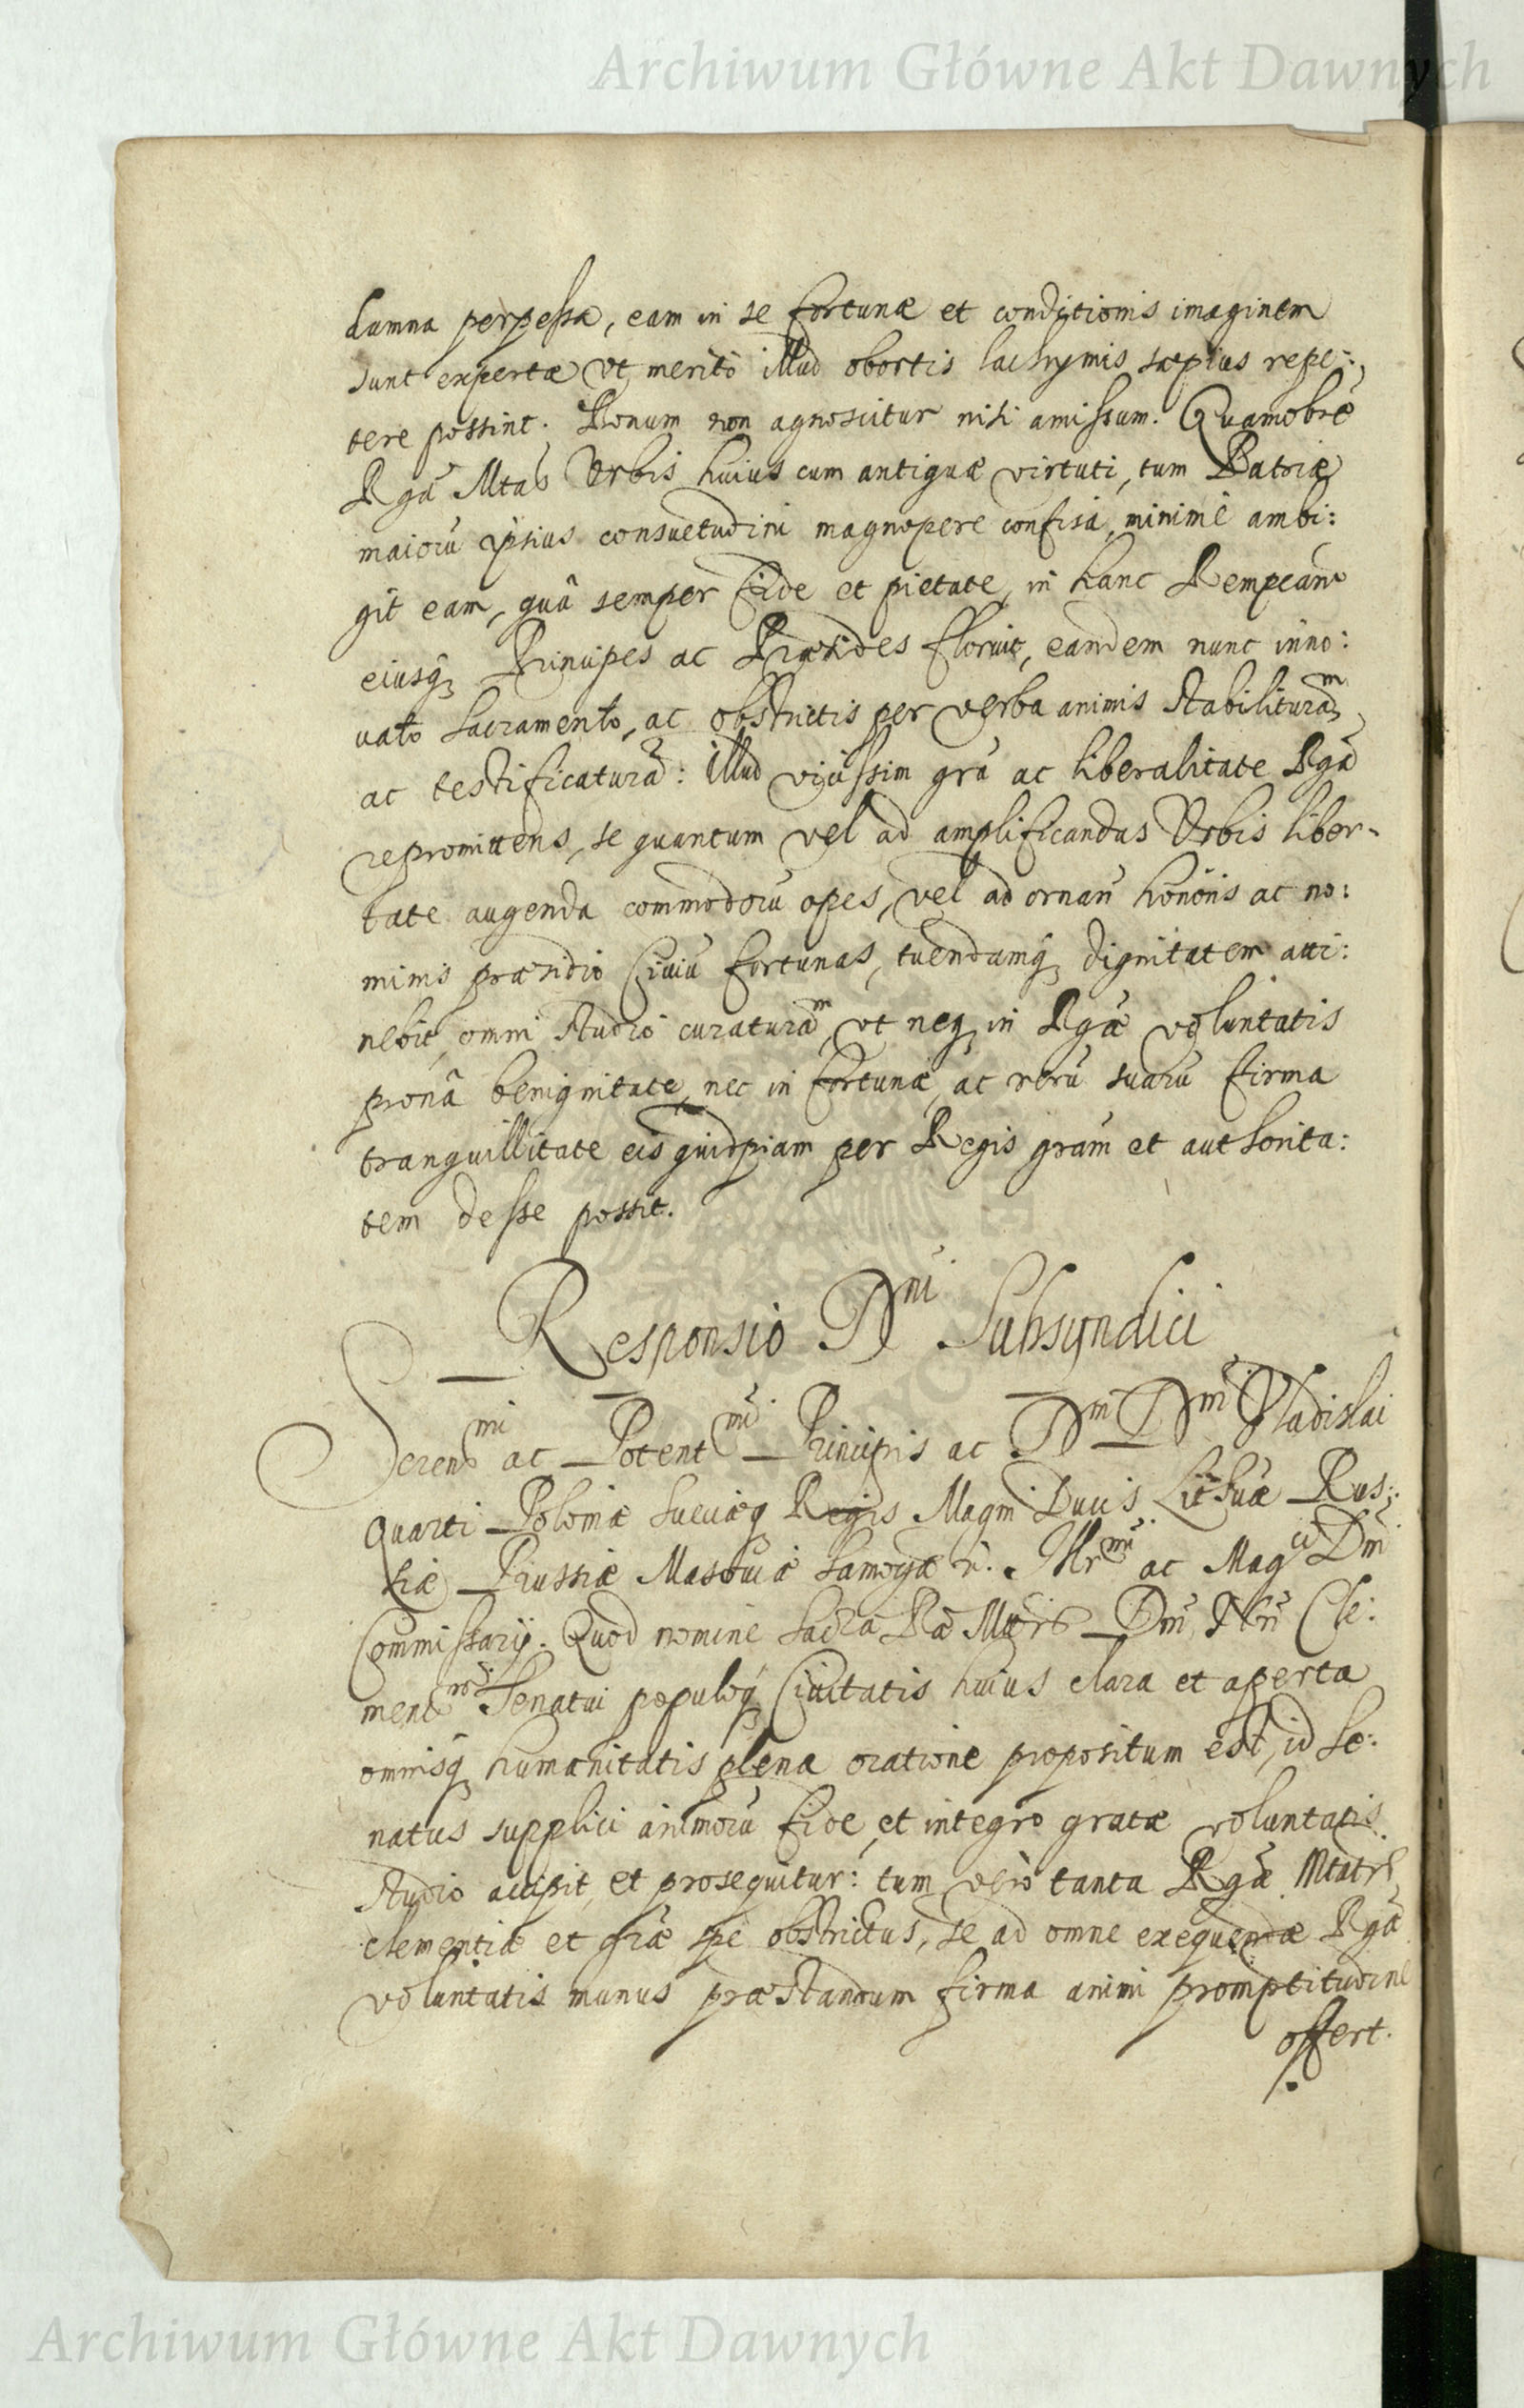 Archiwum Główne Akt Dawnych
damna perpessæ, eam in se fortunæ et conditionis imaginem
sunt expertæ vt merito illud obortis lachrymis sæpius repe:
tere possint. Bonum non agnoscitur nisi amissum. Quamobrē
Rga Mtas Vrbis huius cum antiquæ virtuti, tum Patriæ
maiorū ipsius consuetudini magnopere confisa, minimè ambi:
git eam, quâ semper fide et pietate, in hanc Rempcam
eiusq Principes ac Præsides floruit, eandem nunc inno:
uato Sacramento, ac obstrictis per verba animis stabiliturā
ac testificaturā: Illud vicissim gra ac liberalitate Rga
repromittens, se quantum vel ad amplificandas Vrbis liber-
tate augenda commodorū opes, vel ad ornan honoris ac no:
minis præsidio Ciuiū fortunas, tuendamq dignitatem atti:
nebit, omni studio curaturam, vt neq in Rgæ voluntatis
pronâ benignitate, nec in fortunæ, ac rerū suarū firma
tranquillitate eis quidpiam per Regis gram et authorita:
tem desse possit.
Responsio Dni Subsyndici
Serenmi ac Potentmi Principis ac Dni Dni Vladislai
Quarti Poloniæ Sueciæq Regis Magni Ducis Lithuæ Rus:
siæ Prussiæ Masouiæ Samogæ Illrmi ac Magci Dni
Commissarij. Quod nomine Sacræ Ræ Mttis Dni Nri Cle:
menmi Senatui populoq Ciuitatis huius clara et aperta
omnisq humanitatis plena oratione propositum est, id Se:
natus supplici animorū fide, et integro gratæ voluntatis
studio accipit, et prosequitur: tum vero tanta Rgæ Mtatis
clementiæ et græ spe obstrictus, se ad omne exequendæ Rgæ
voluntatis munus præstandum firma animi promptitudine
offert.
Archiwum Główne Akt Dawnych